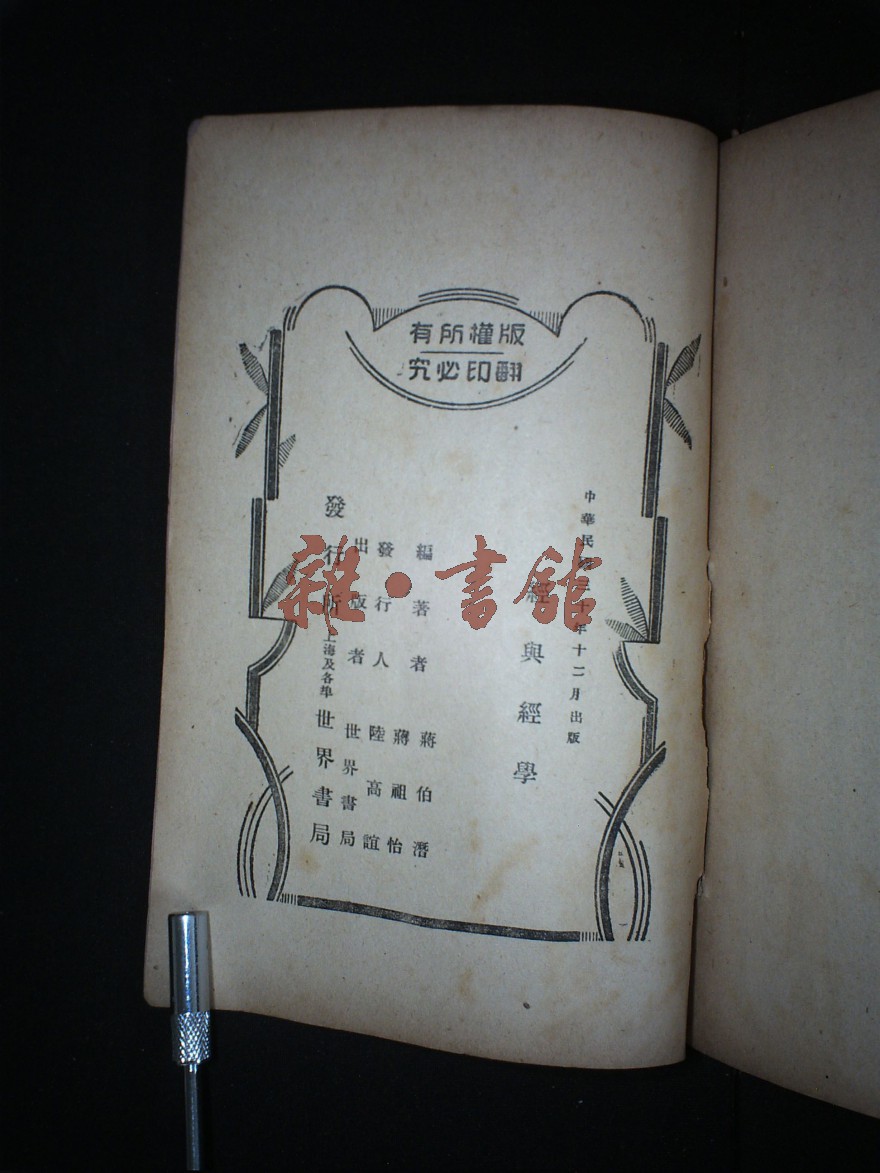 版權所有
翻印必究
中華民國三十年十二月出版
經與經學
編著者 蔣伯潛
蔣祖怡
發行人 陸高誼
出版者 世界書局
發行所 上海及各埠 世界書局
雜·書館